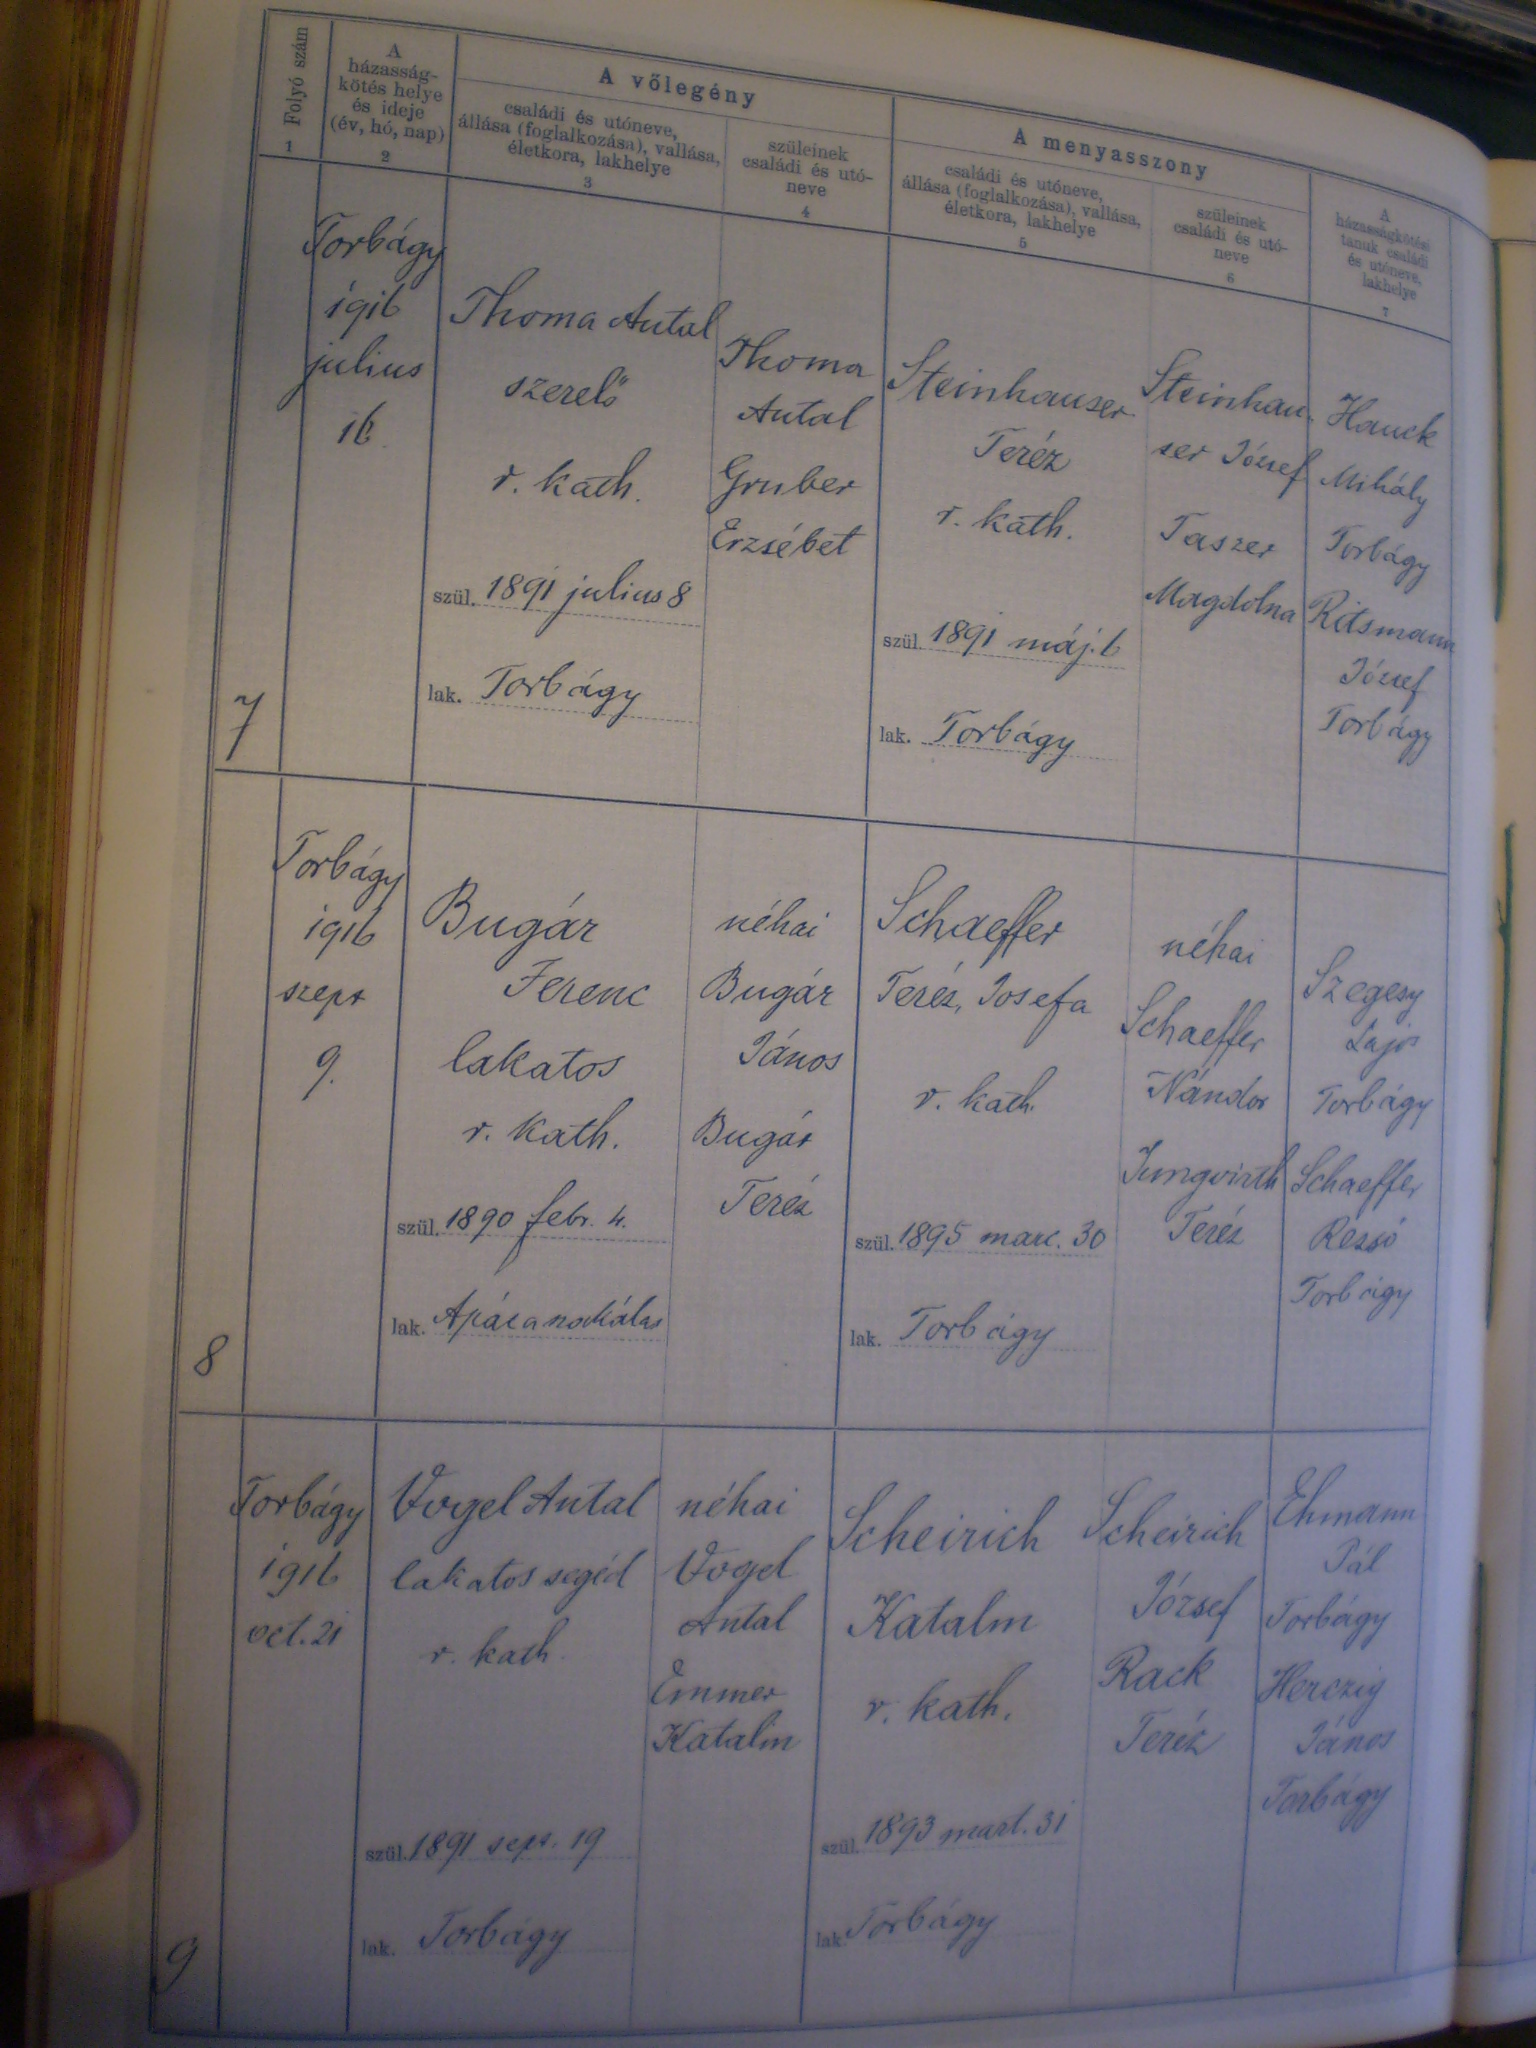 Folyó szám
1
A
házasság-
kötés helye
és ideje
(év, hó, nap)
2
A vőlegény
családi és utóneve,
állása (foglalkozása), vallása,
életkora, lakhelye
3
szüleinek
családi és utó-
neve
4
A menyasszony
családi és utóneve,
állása (foglalkozása), vallása,
életkora, lakhelye
5
szüleinek
családi és utó-
neve
6
A
házasságkötési
tanuk családi
és utóneve,
lakhelye
7
7
Torbágy
1916
julius
16
Thoma Antal
szerelő
r. kath.
szül. 1891 julius 8
lak. Torbágy
Thoma
Antal
Gruber
Erzsébet
Steinhauser
Teréz
r. kath.
szül. 1891 máj. 6
lak. Torbágy
Steinhau-
ser József
Taszer
Magdolna
Hauck
Mihály
Torbágy
Ritsmann
József
Torbágy
8
Torbágy
1916
szept
9.
Bugár
Ferenc
lakatos
r. kath.
szül. 1890 febr. 4.
lak.
néhai
Bugár
János
Bugár
Teréz
Schaeffer
Teréz, Josefa
r. kath.
szül. 1895 marc. 30
lak. Torbágy
néhai
Schaeffer
Nándor
Jungvirth
Teréz
Szegesy
Lajos
Torbágy
Schaeffer
Rezső
Torbágy
9
Torbágy
1916
oct. 21
Vogel Antal
lakatos segéd
r. kath.
szül. 1891 sept. 19
lak. Torbágy
néhai
Vogel
Antal
Emmer
Katalin
Scheirich
Katalin
r. kath.
szül. 1893 mart. 31
lak. Torbágy
Scheirich
József
Rack
Teréz
Ehmann
Pál
Torbágy
Herczig
János
Torbágy